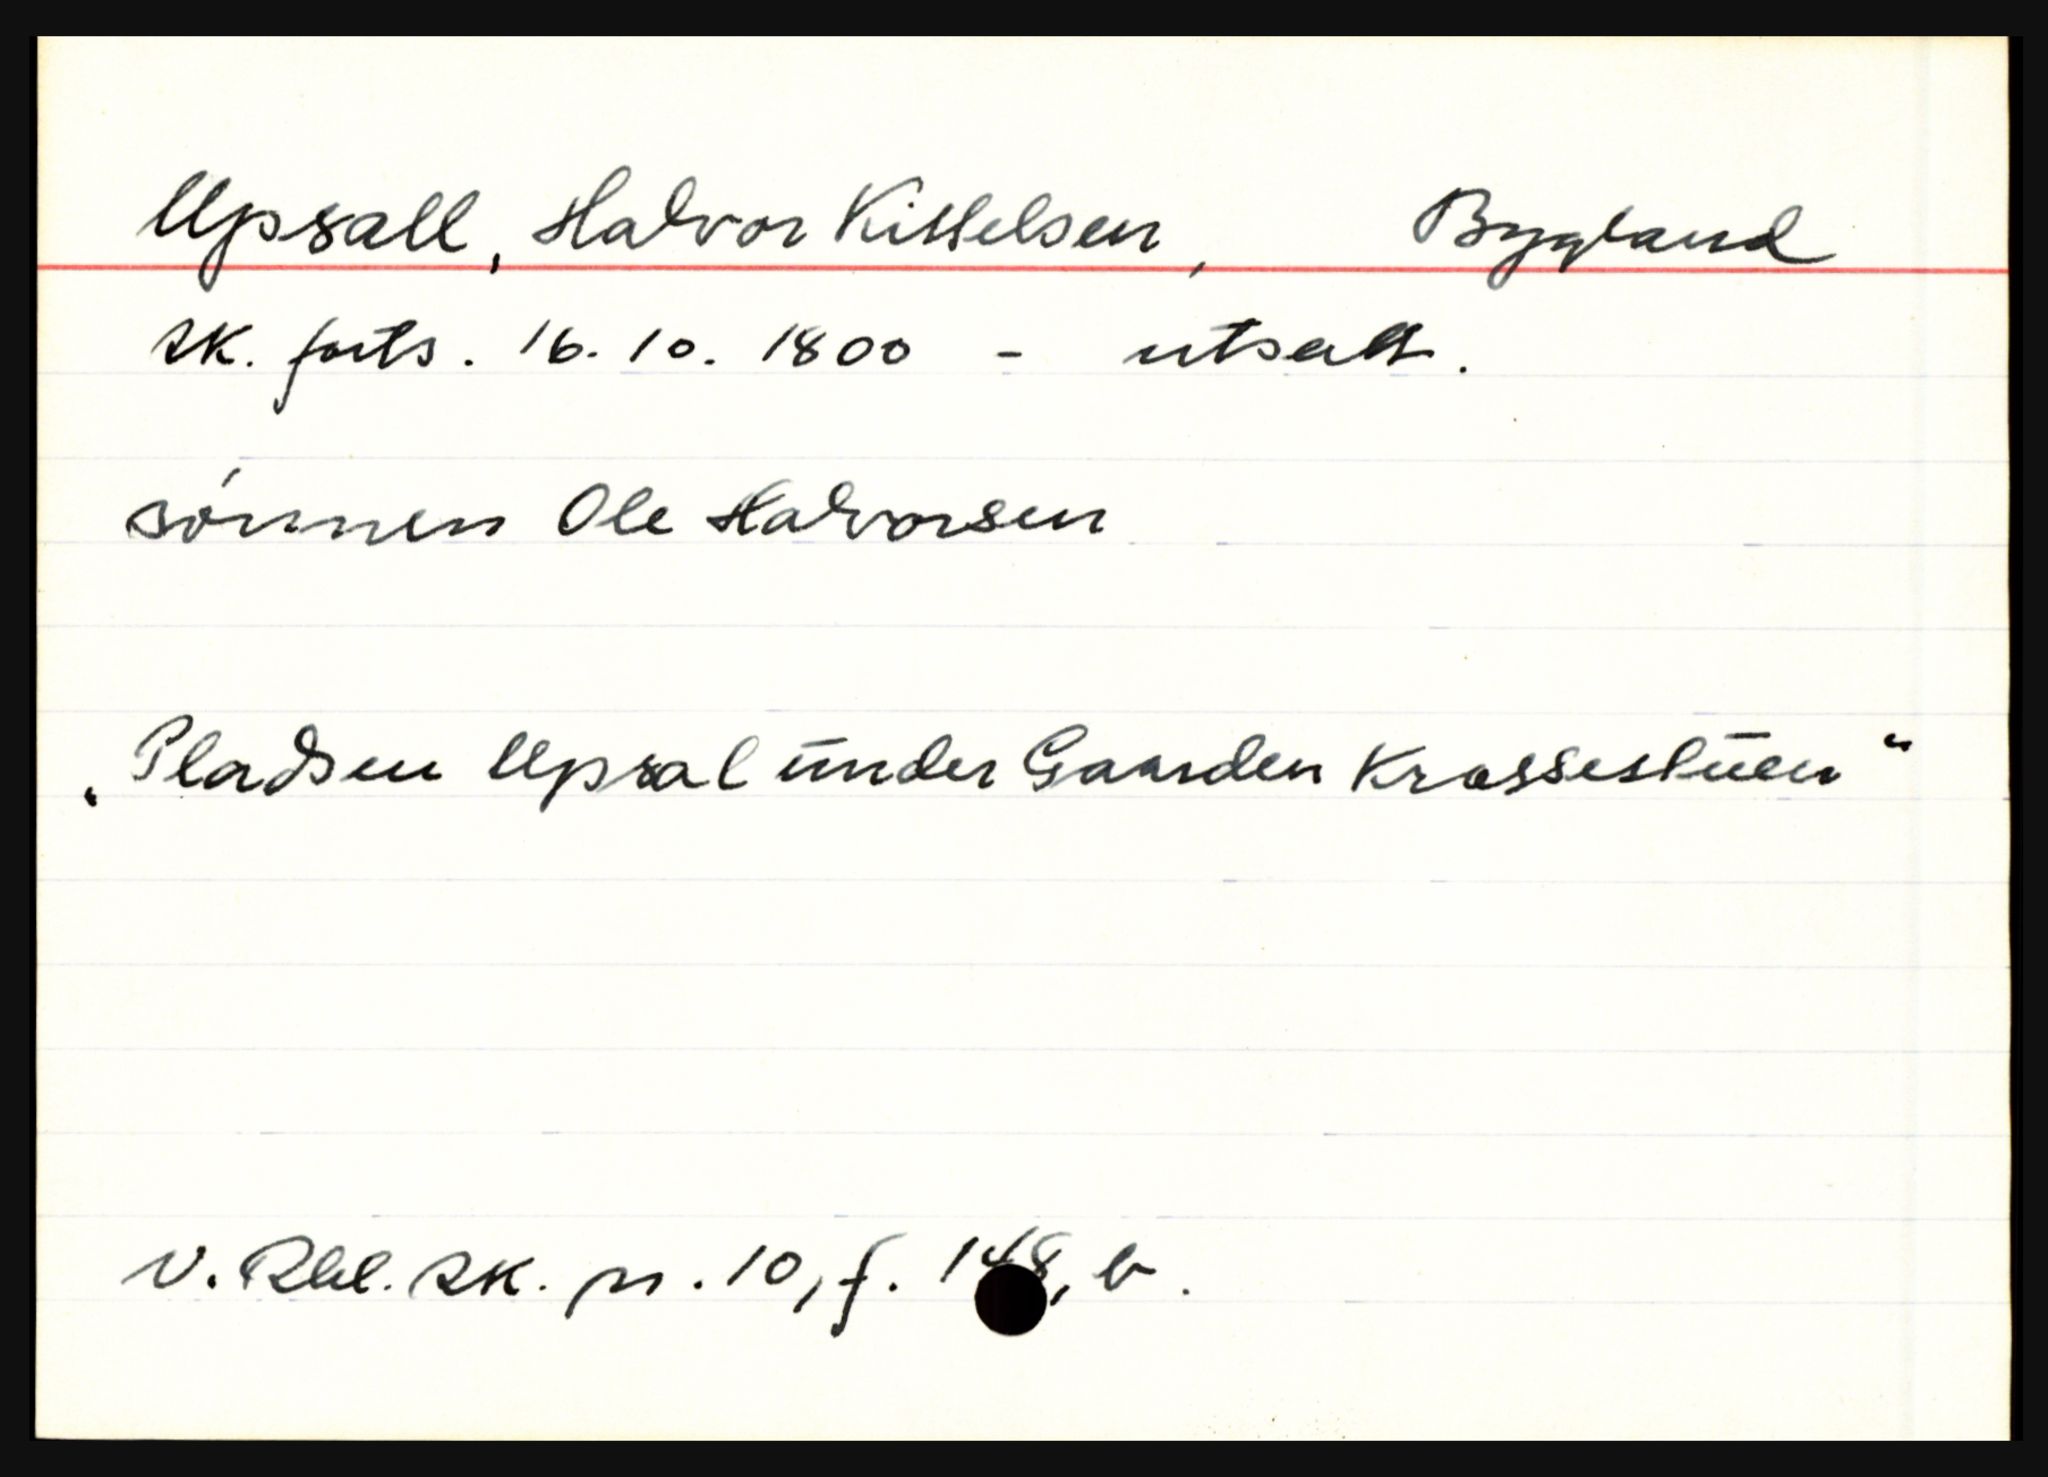 Upsall, Halvor Kittelsen, Bygland
sk. forts. 16.10. 1800 - utsatt.
sønnen Ole Halvorsen
„Pladsen Upsal under Gaarden Krossestuen“
V. Rbl. sk. pr. 10, f. 148, b.